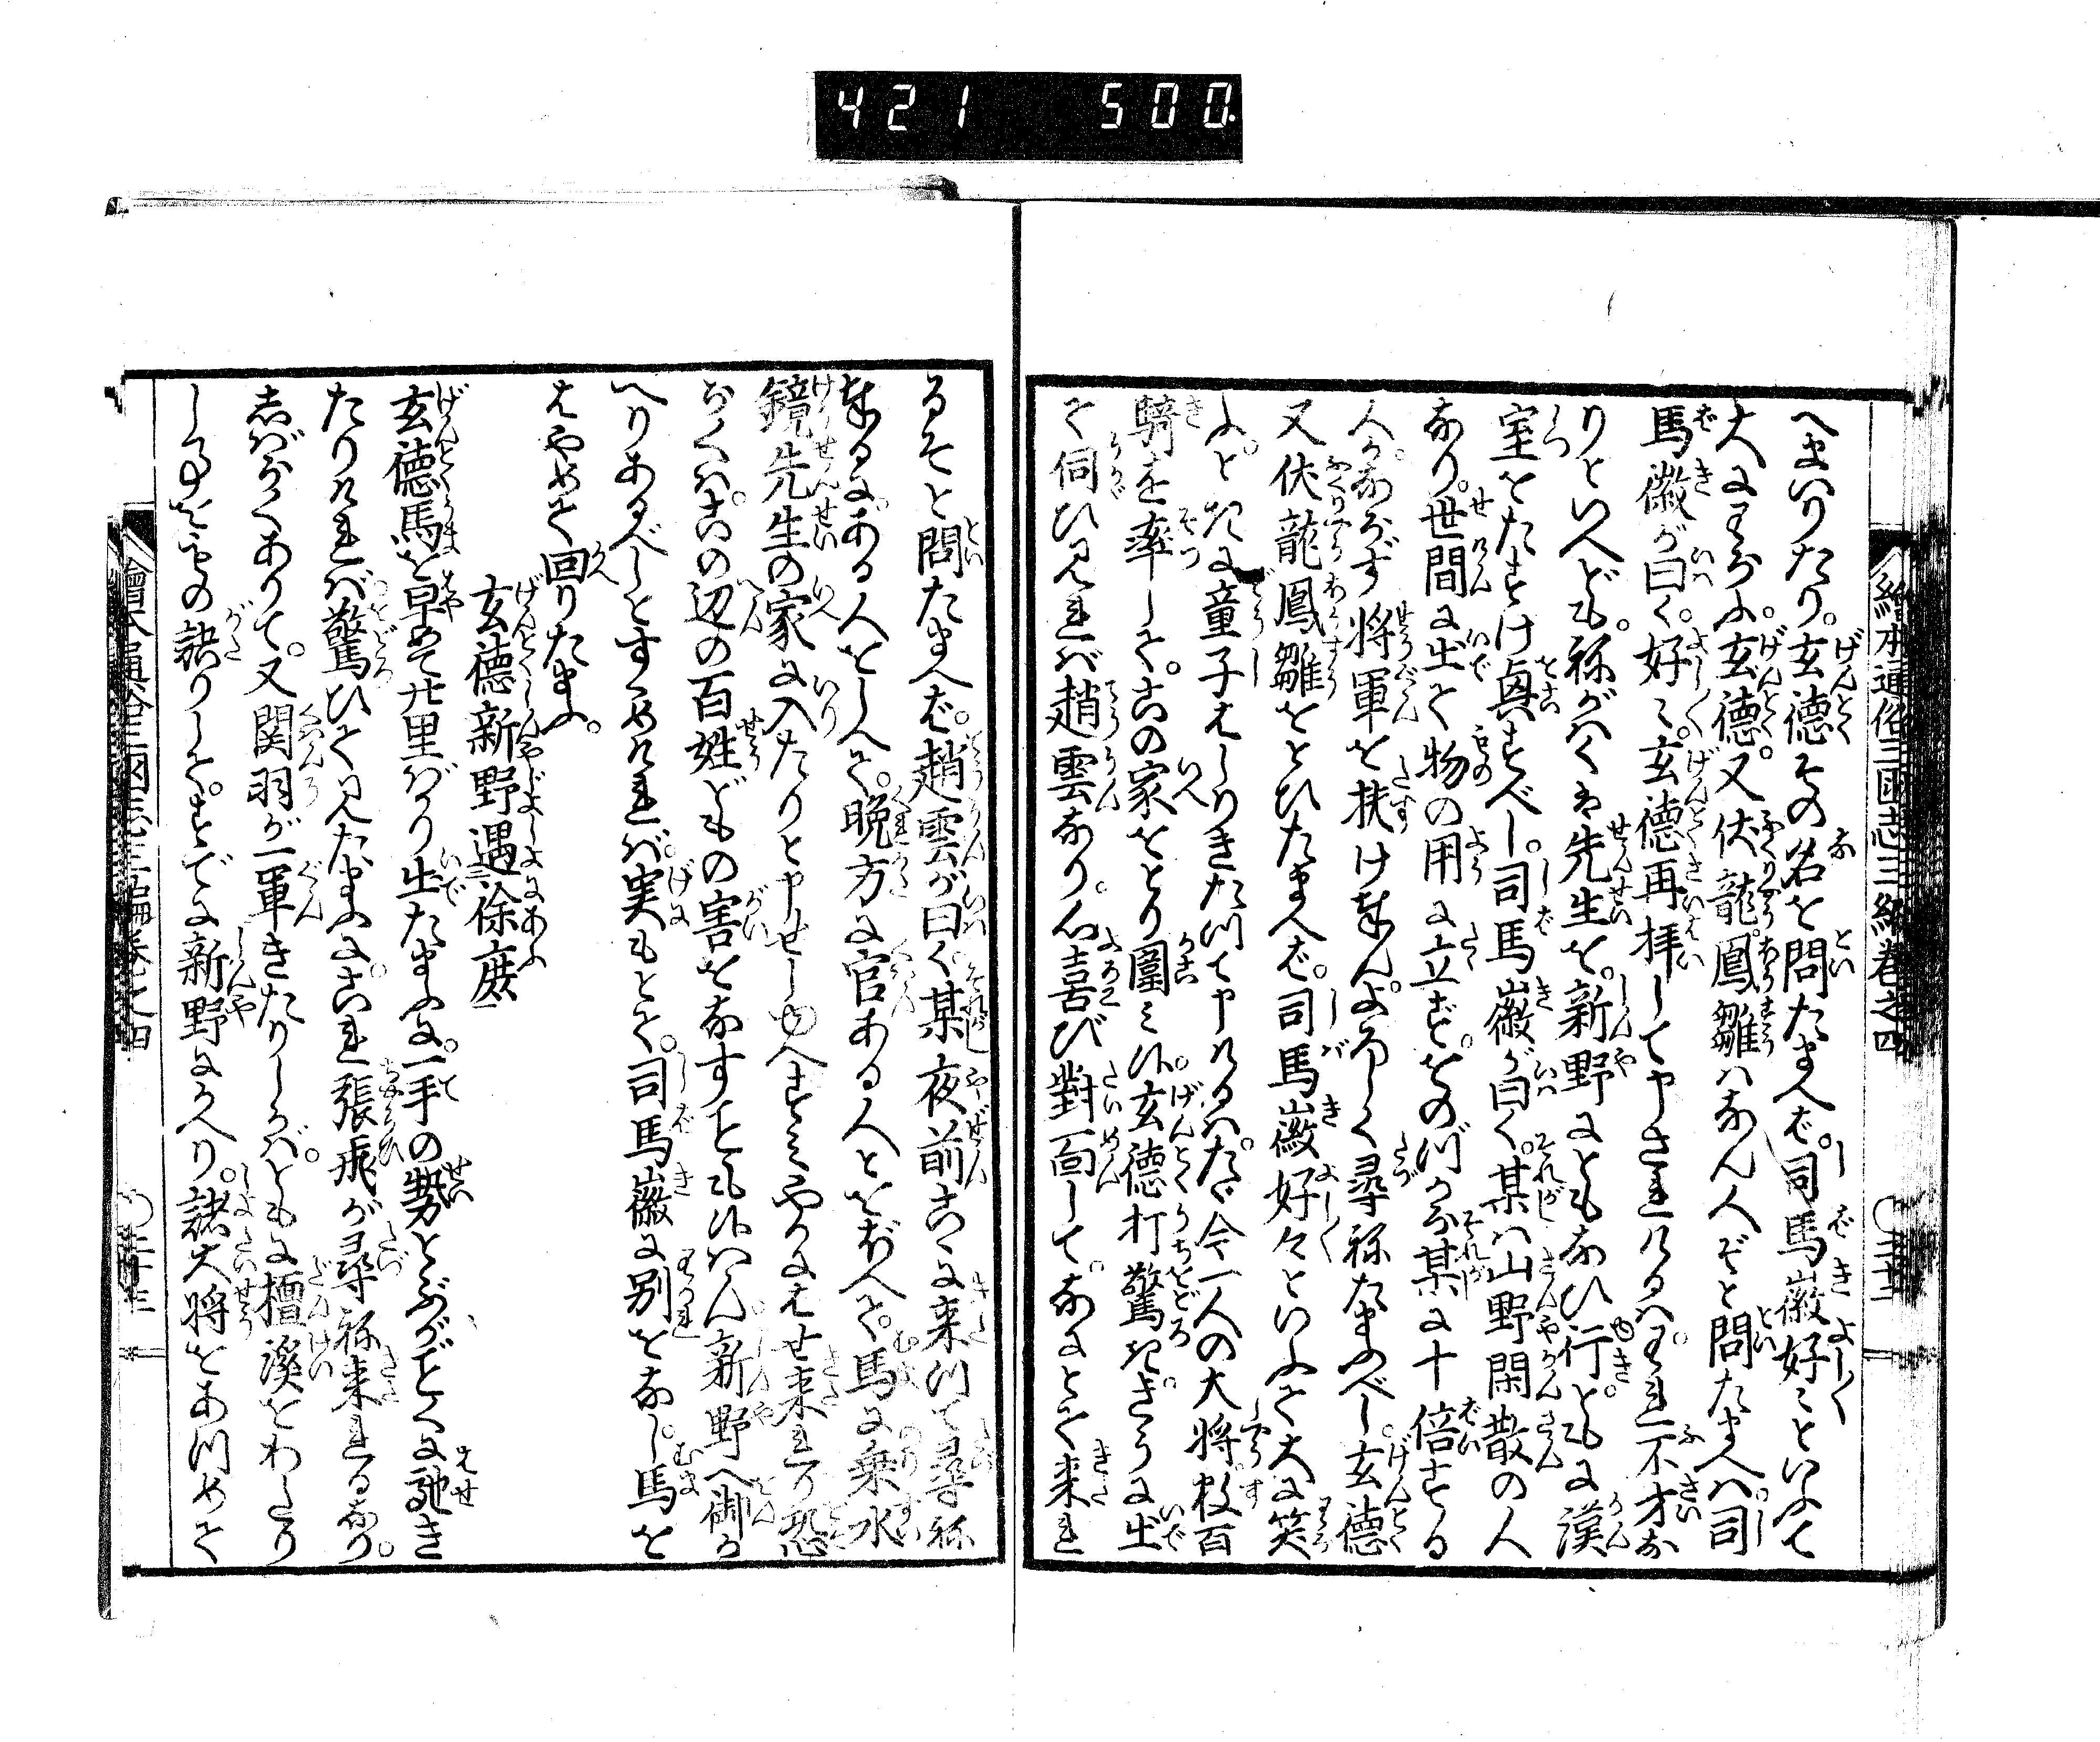 421 500.
繪本通俗三國志三編卷之四
へまいりたり。玄徳その名を問たまへば。司馬徽好々といふて
大によろこぶ。玄徳。又伏龍鳳雛はなん人ぞと問たまへば。司
馬徽が曰く。好々。玄徳再拝して申されけるは。われ不才な
りといへども。ねがはくは先生を。新野にともなひ行。ともに漢
室をたすけ興すべし。司馬徽が曰く。某は山野閑散の人
なり。世間に出て物の用に立ず。をのづから某に十倍する
人かならず将軍を扶け奉らん。よろしく尋ねたまふべし。玄徳
又伏龍鳳雛をとひたまへば。司馬徽好々といふて大に笑
ふ。ときに童子はしりきたつて申けるは。たゞ今一人の大将数百
騎を率して。この家をとり圍み候。玄徳打驚き。さうに出
て伺ひ見れば趙雲なり。心喜び對面して。なにとて来れ
るぞと問たまへば。趙雲が曰く。某夜前こゝに来つて尋ね
奉るに。ある人をしへて。晩方に官ある人とをぼへて。馬に乗水
鏡先生の家に入たりと申せしゆへすみやかにはせ来れり恐
らくは。この辺の百姓どもの害をなすことも候はん。新野へ御か
へりあるべしとすゝめければ。実もとて。司馬徽に別をなし。馬を
はやめて回りたまふ。
玄徳新野遇徐庶
玄徳馬を早めて廿里ばかり出たまふに。一手の勢とぶがごとくに馳き
たりければ驚ひて見たまふに。これ張飛が尋ね来れるなり。
しばらくありて。又関羽が一軍きたりしかば。ともに檀溪をわたり
し事をものがたりして。すでに新野にかへり。諸大将をあつめて
繪本通俗三國志三編卷之四